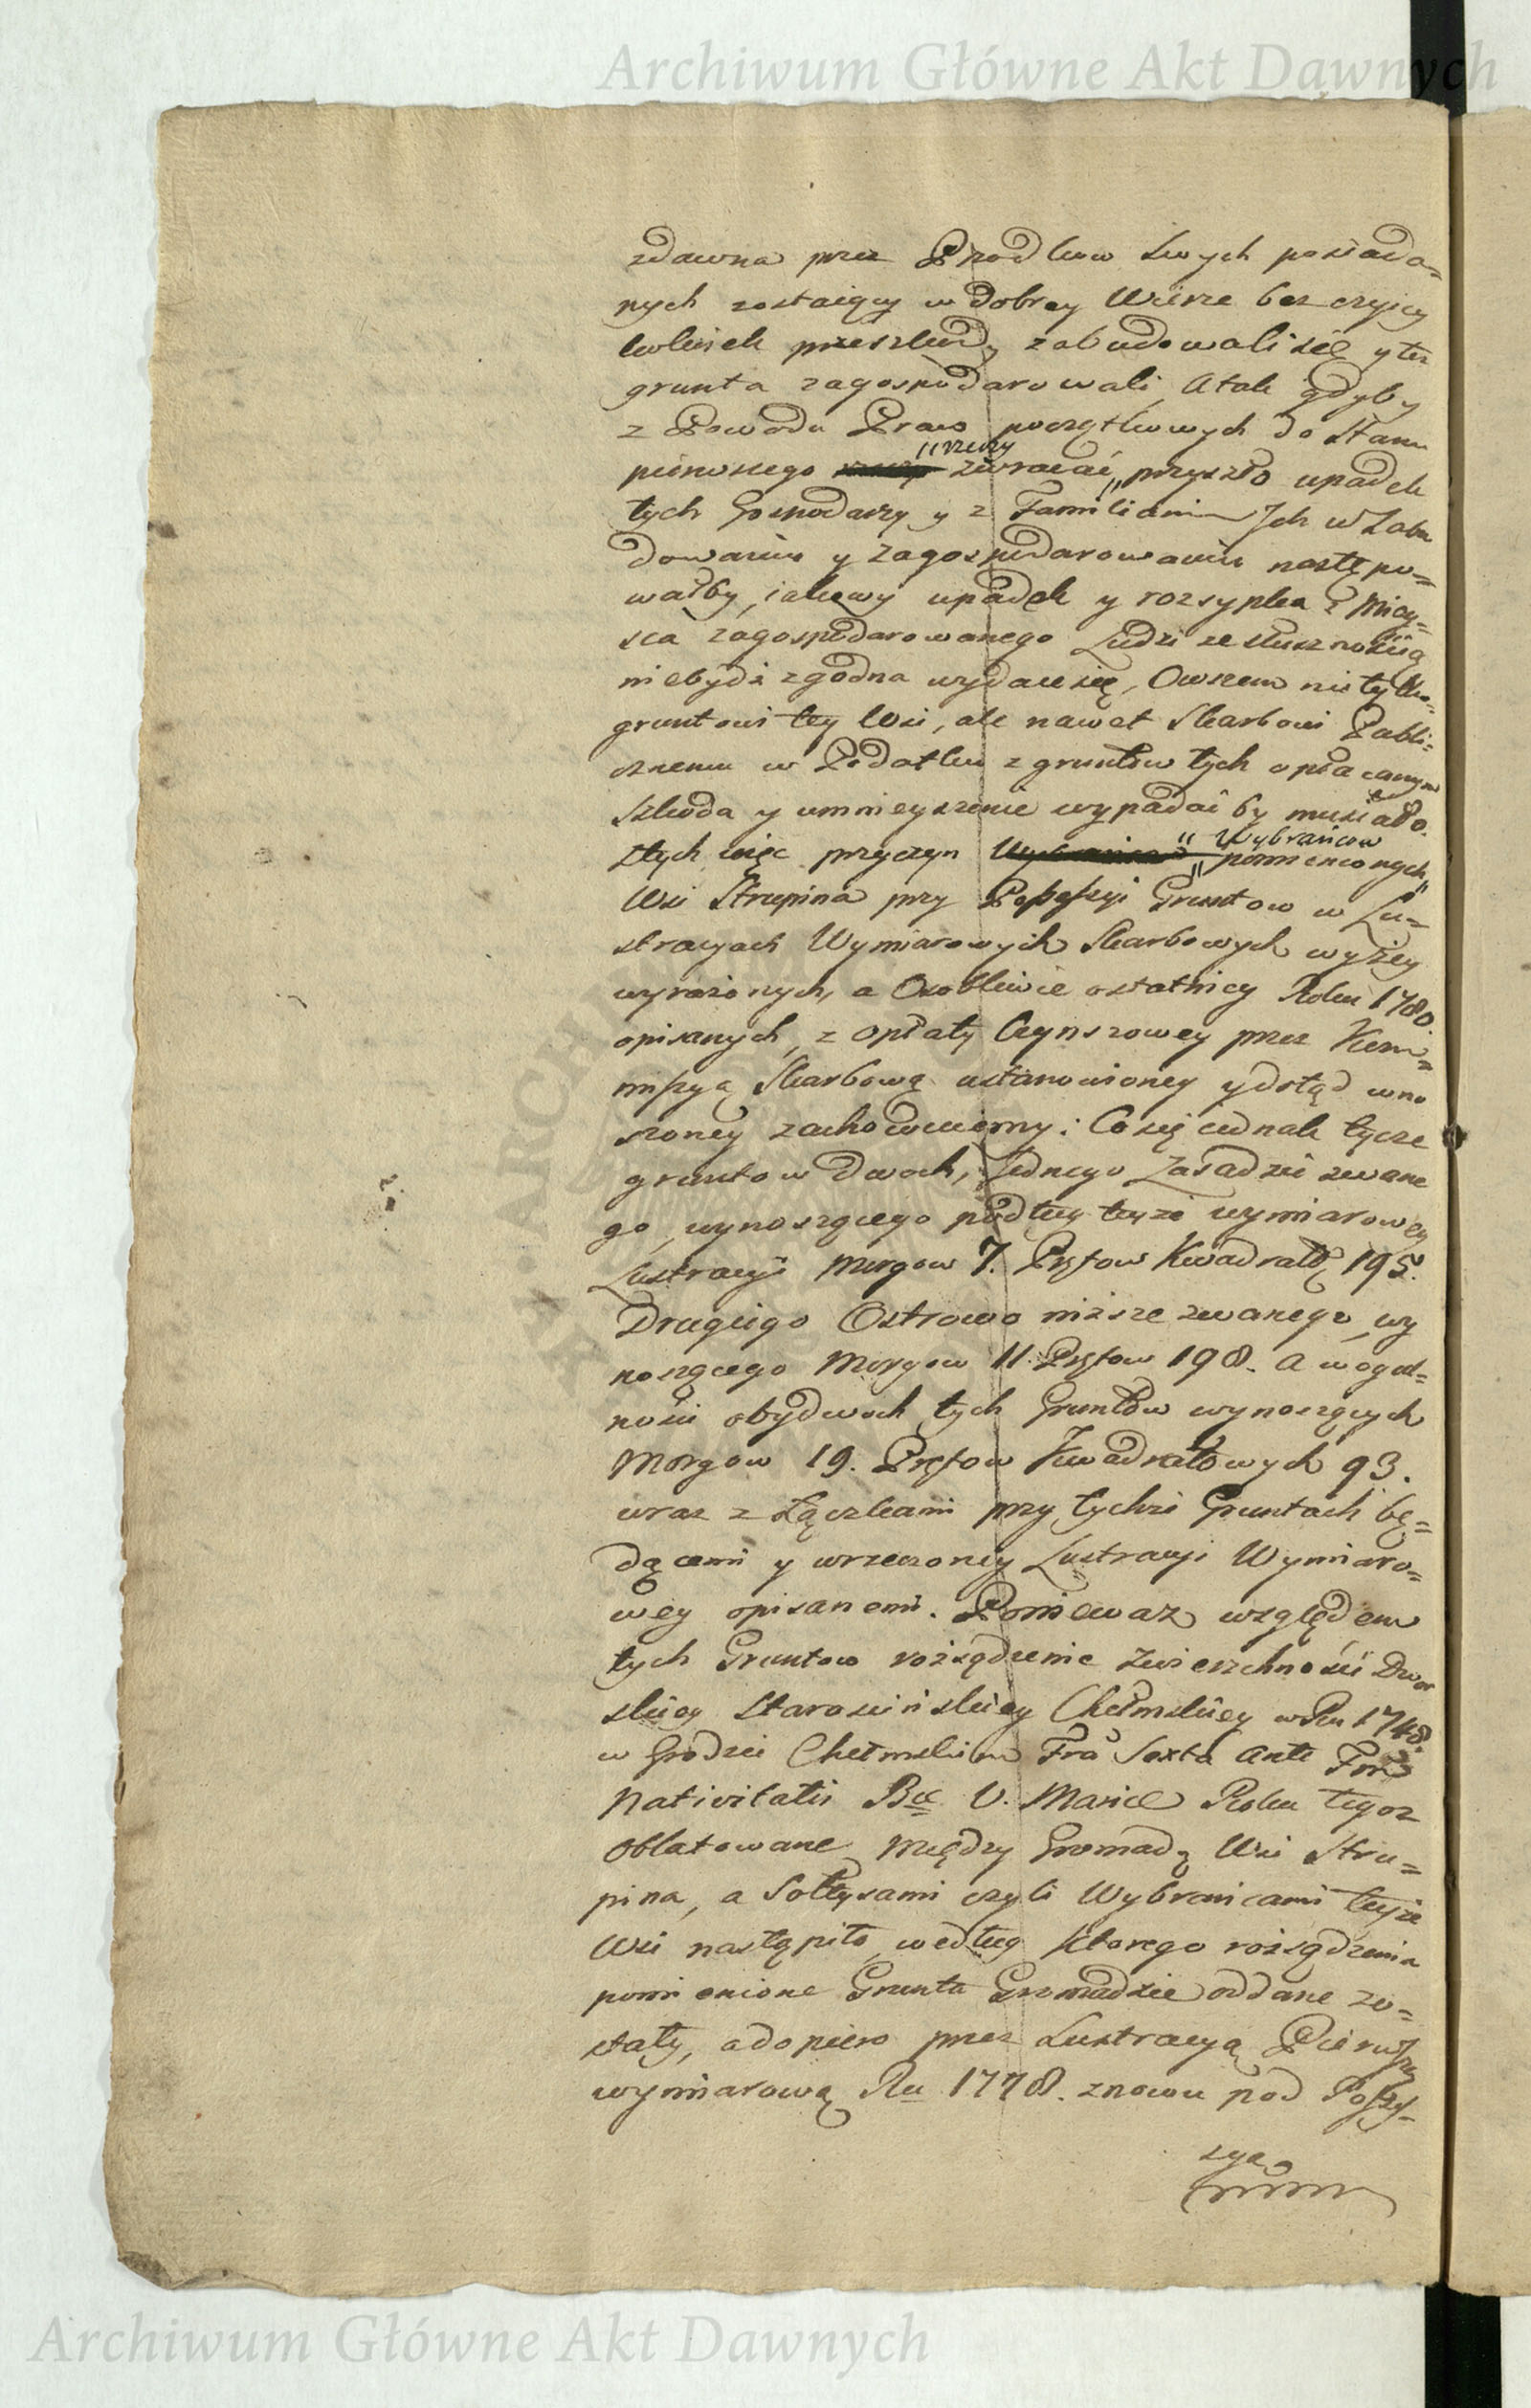 Archiwum Główne Akt Dawnych
zdawna przez Przodkow swych posiada=
nych zostaiący w dobrey Wierze bez czyiey
kolwiek przeszkody zabudowali się y też
grunta zagospodarowali, A tak gdyby
z Powodu Praw początkowych do Stanu
pierwszego "rzeczy zwracać" przyszło upadek
tych Gospodarzy y z Familiami Ich w Zabu
dowaniu y zagospodarowaniu następo=
wałby, iakowy upadek y rozsypka z Miey=
sca zagospodarowanego Ludzi ze słusznością
niebydź zgodna wydaie się, Owszem nie tylko
gruntowi tey Wsi, ale nawet Skarbowi Publi=
cznemu w Podatku z gruntów tych opłacanym
Szkoda y umnieyszenie wypadać by musiało.
Z tych więc przyczyn "Wybrańcow" pomienionych
Wsi Strupina przy Possessyi Gruntow w Lu=
stracyach Wymiarowych Skarbowych wyżey
wyrażonych, a Osobliwie ostatniey Roku 1780.
opisanych, z opłaty Czynszowey przez Kom=
missyą Skarbową ustanowioney y dotąd wno
szoney zachowuiemy: Co się iednak tycze
gruntow dwoch, Jednego Zasadzie zwane
go, wynoszącego podług teyże wymiarowey
Lustracyi Morgow 7. Prętow Kwadrató 195.
Drugiego Ostrowo niższe zwanego, wy
noszącego Morgow 11. Prętow 198. A w ogul=
ności obydwoch tych Gruntów wynoszących
Morgow 19. Prętow Kwadratowych 93.
wraz z Łączkami przy tychże Gruntach bę=
dącemi y wrzeczoney Lustracyi Wymiaro=
wey opisanemi. Ponieważ względem
tych Gruntow rozsądzenie Zwierzchności Dwor
skiey Starościńskiey Chełmskiey w Ru 1748.
w Grodzie Chełmskim Fra Sexta Ante Fm
Nativitatis Bæ V. Mariæ Roku tegoż
Oblatowane między Gromadą Wsi Stru=
pina, a Sołtysami czyli Wybrańcami teyże
Wsi nastąpiło, według którego rozsądzenia
pomienione Grunta Gromadzie oddane zo=
stały, a dopiero przez Lustracyą Pierwszą
wymiarową Ru 1778. znowu pod Possys=
syą
Archiwum Główne Akt Dawnych